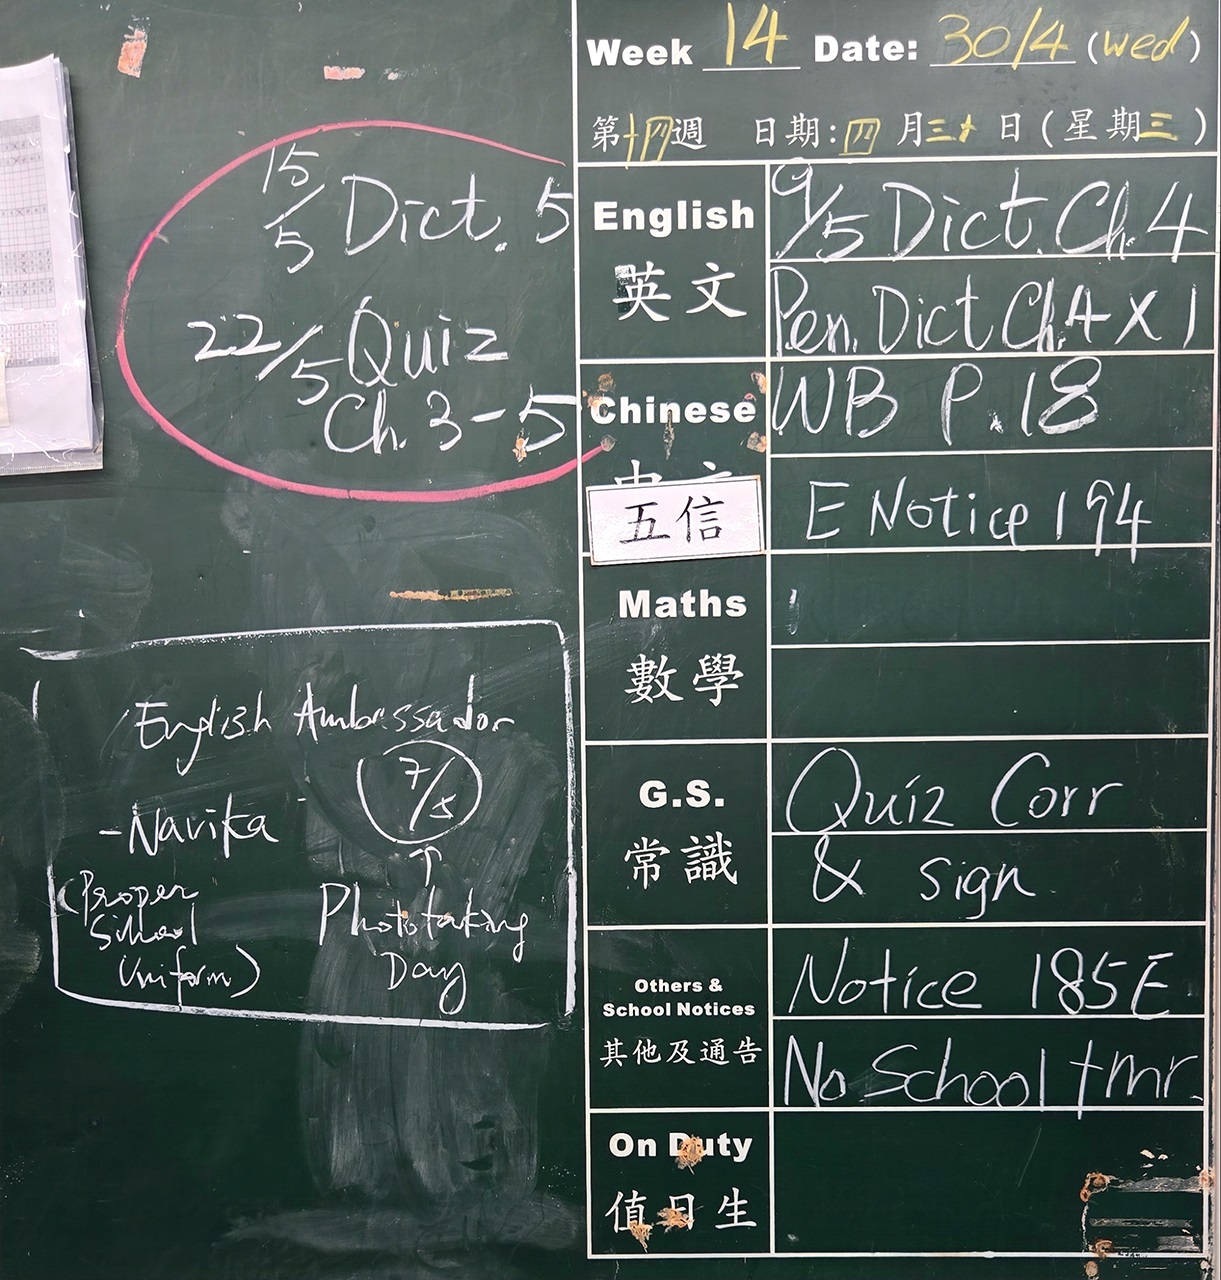 Week 14 Date: 30/4 (wed)
第十四週 日期:四月三十日(星期三)
15/5 Dict. 5
22/5 Quiz
Ch. 3-5
English
英文
9/5 Dict. Ch. 4
Pen. Dict Ch. 4 X 1
Chinese
WB P. 18
五信
E Notice 194
Maths
數學
G.S.
常識
Quiz Corr
& sign
Others &
School Notices
其他及通告
Notice 185E
No School tmr.
On Duty
值日生
English Ambassador
7/5
-Navika
↑
(Proper
School
Uniform)
Phototaking
Day